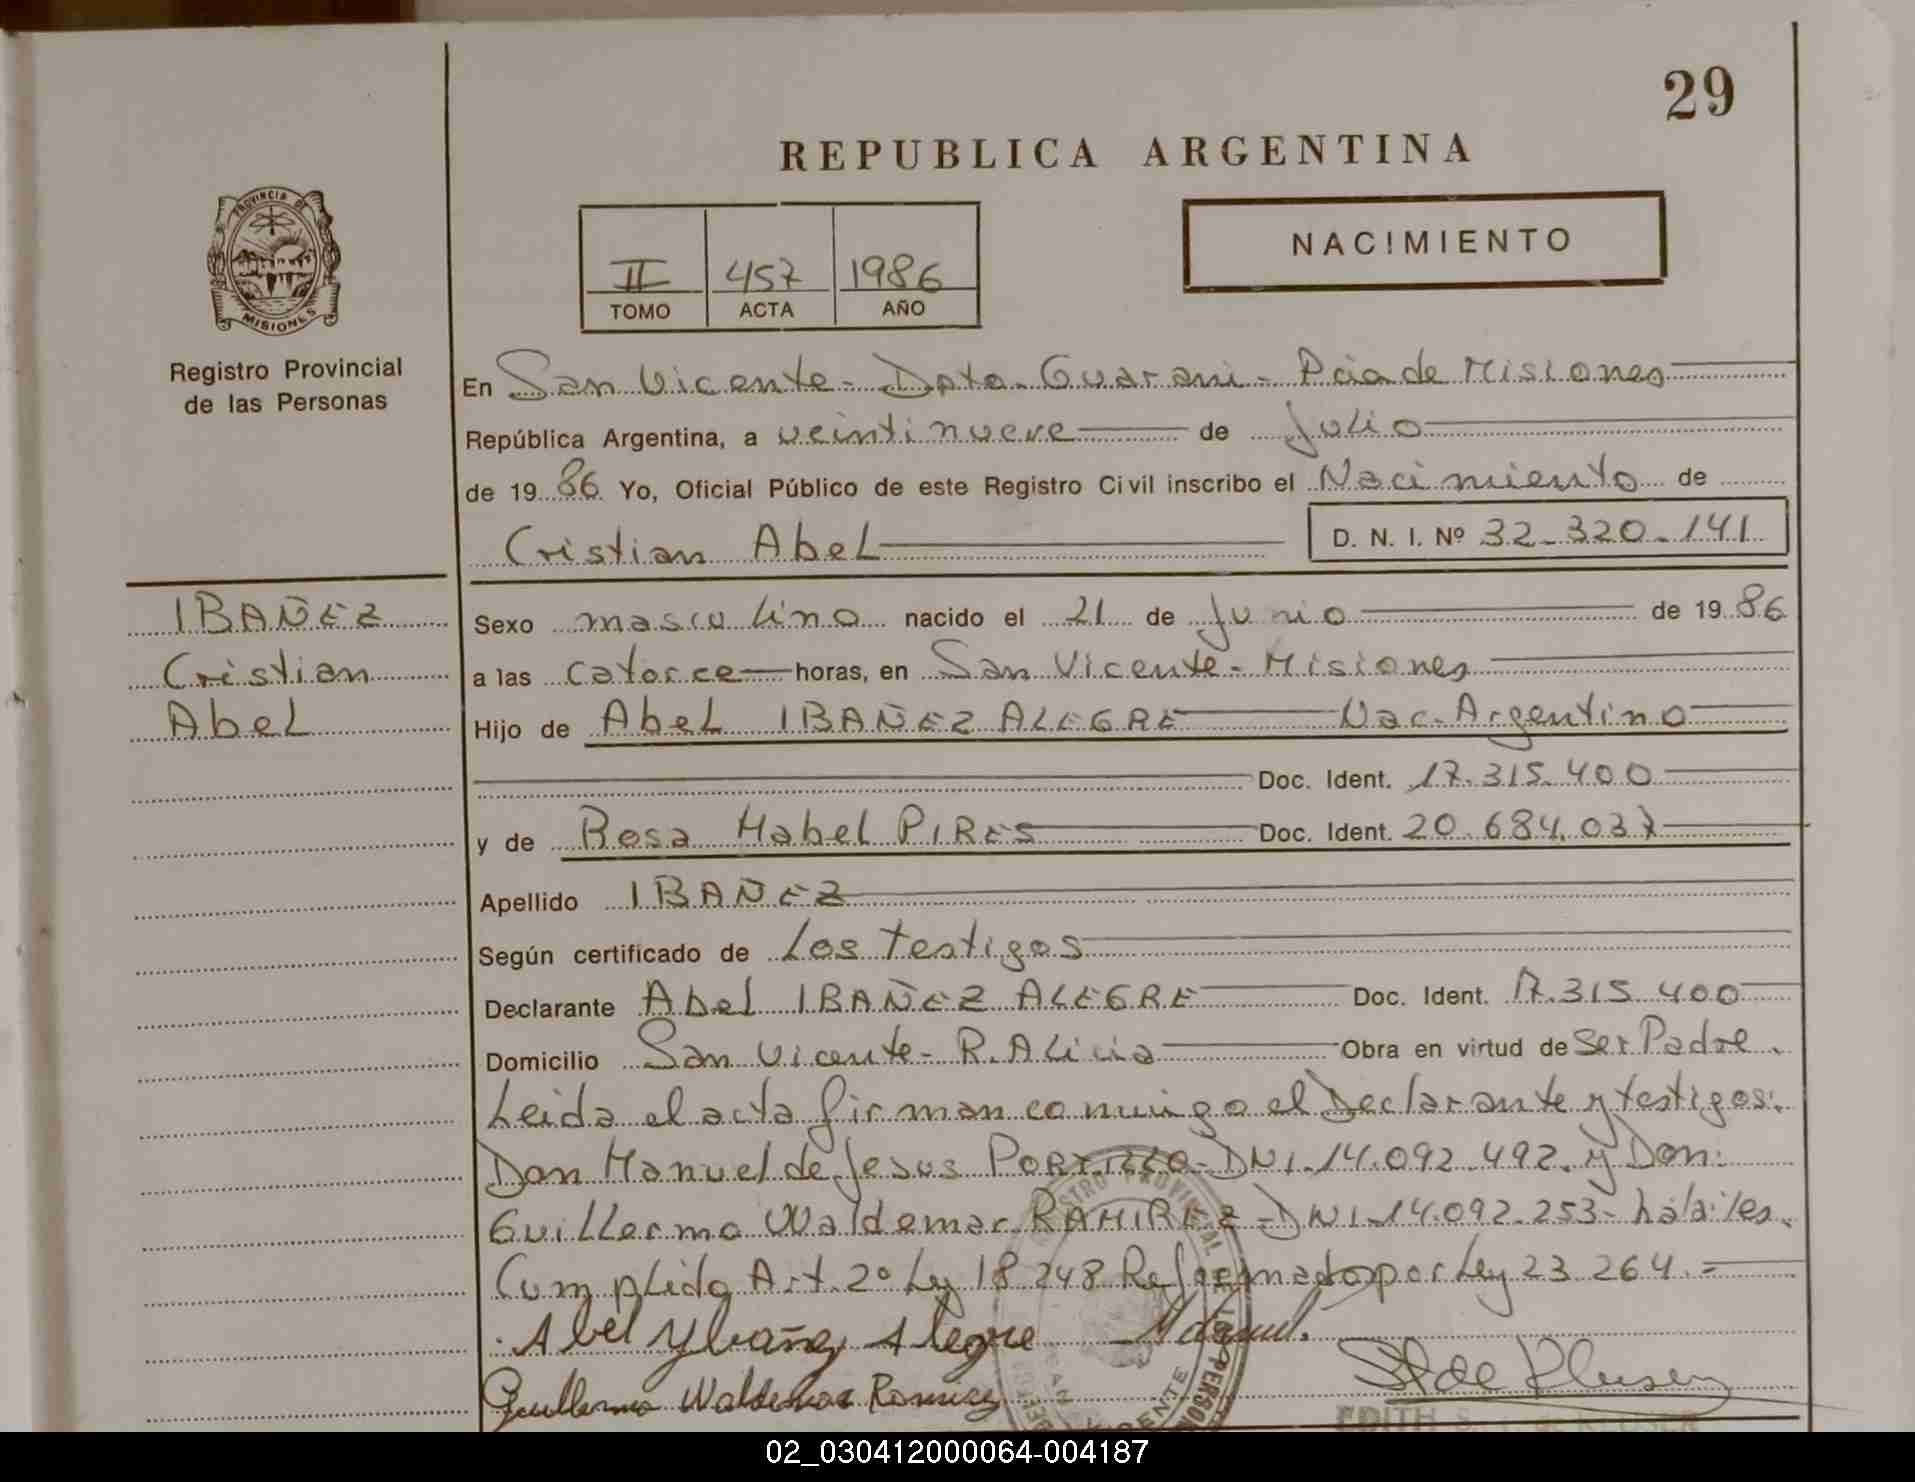 29
REPUBLICA ARGENTINA
PROVINCIA DE
MISIONES
Registro Provincial
de las Personas
II 457 1986
TOMO ACTA AÑO
NACIMIENTO
En San Vicente - Dpto. Guarani - Pcia de Misiones
República Argentina, a veintinueve de Julio
de 19 86 Yo, Oficial Público de este Registro Civil inscribo el Nacimiento de
Cristian Abel D. N. I. Nº 32-320-141
IBAÑEZ
Cristian
Abel
Sexo masculino nacido el 21 de Junio de 19 86
a las catorce horas, en San Vicente - Misiones
Hijo de Abel IBAÑEZ ALEGRE Nac. Argentino
Doc. Ident. 17.315.400
y de Rosa Mabel PIRES Doc. Ident. 20.684.037
Apellido IBAÑEZ
Según certificado de Los testigos
Declarante Abel IBAÑEZ ALEGRE Doc. Ident. 17.315.400
Domicilio San Vicente - R. Alicia Obra en virtud de Ser Padre.
Leida el acta firman conmigo el Declarante y testigos:
Don Manuel de Jesus PORTILLO - DNI. 14.092.492. y Don:
Guillermo Waldemar RAMIREZ - DNI. 14.092.253 - hábiles.
Cumplido Art. 2º Ley 18248 Reformado por Ley 23.264.=
Abel Ybañez Alegre
Guillermo Waldemar Ramirez
02_030412000064-004187